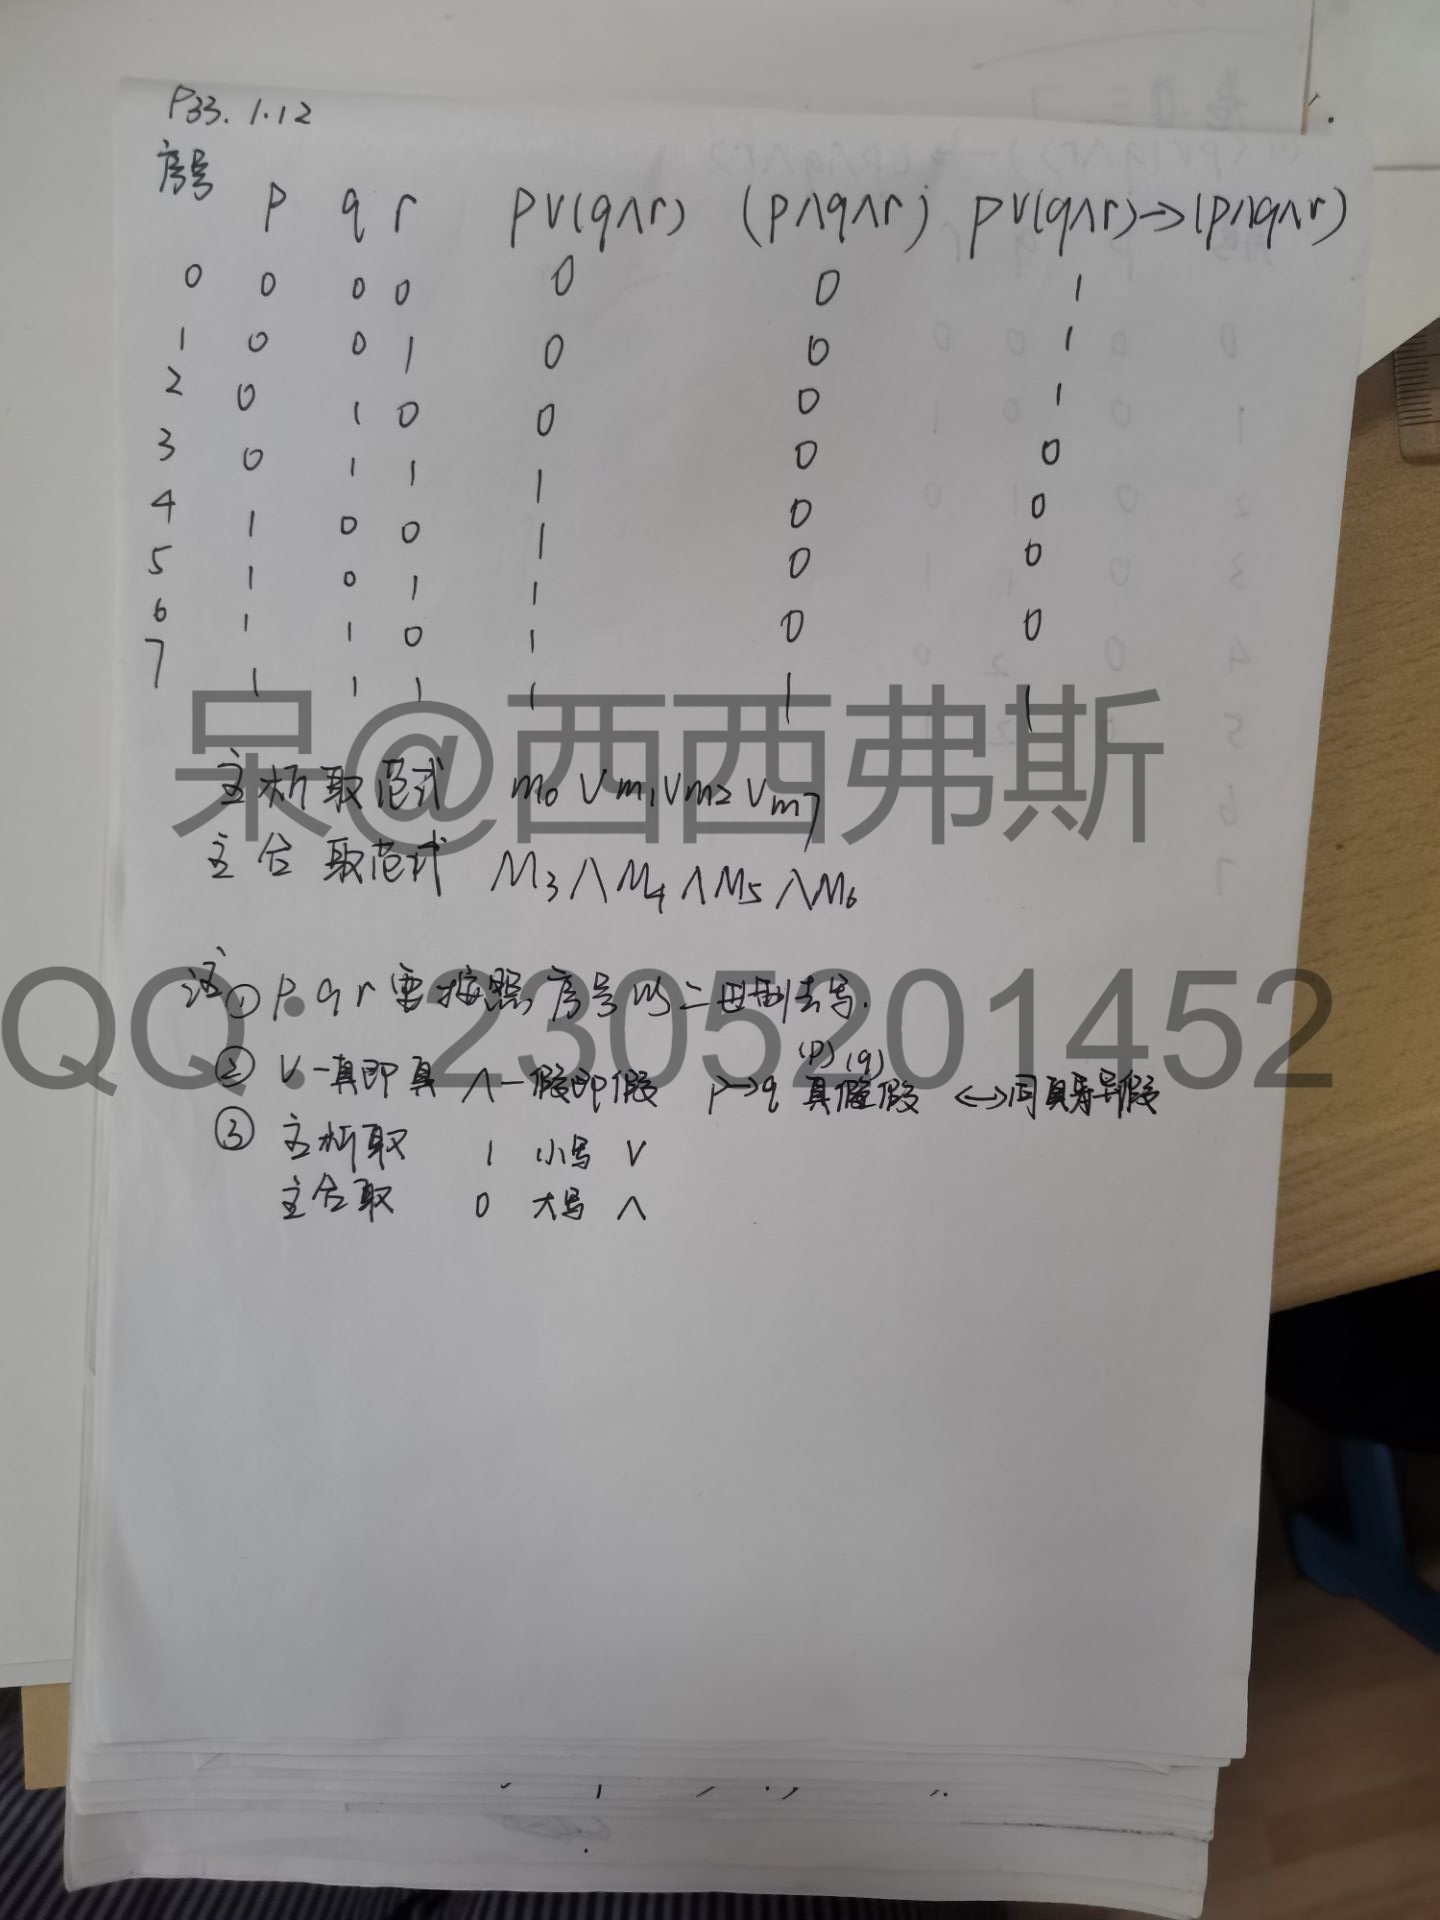 P33. 1.12
序号 p q r p∨(q∧r) (p∧q∧r) p∨(q∧r)→(p∧q∧r)
0 0 0 0 0 0 1
1 0 0 1 0 0 1
2 0 1 0 0 0 1
3 0 1 1 1 0 0
4 1 0 0 1 0 0
5 1 0 1 1 0 0
6 1 1 0 1 0 0
7 1 1 1 1 1 1
呆@西西弗斯
主析取范式 m0∨m1∨m2∨m7
主合取范式 M3∧M4∧M5∧M6
QQ：2305201452
注①p q r需按照序号以二进制去写.
②∨一真即真 ∧一假即假 p→q (p)(q) 真假假 ↔同真异假
③主析取 1 小写 ∨
主合取 0 大写 ∧